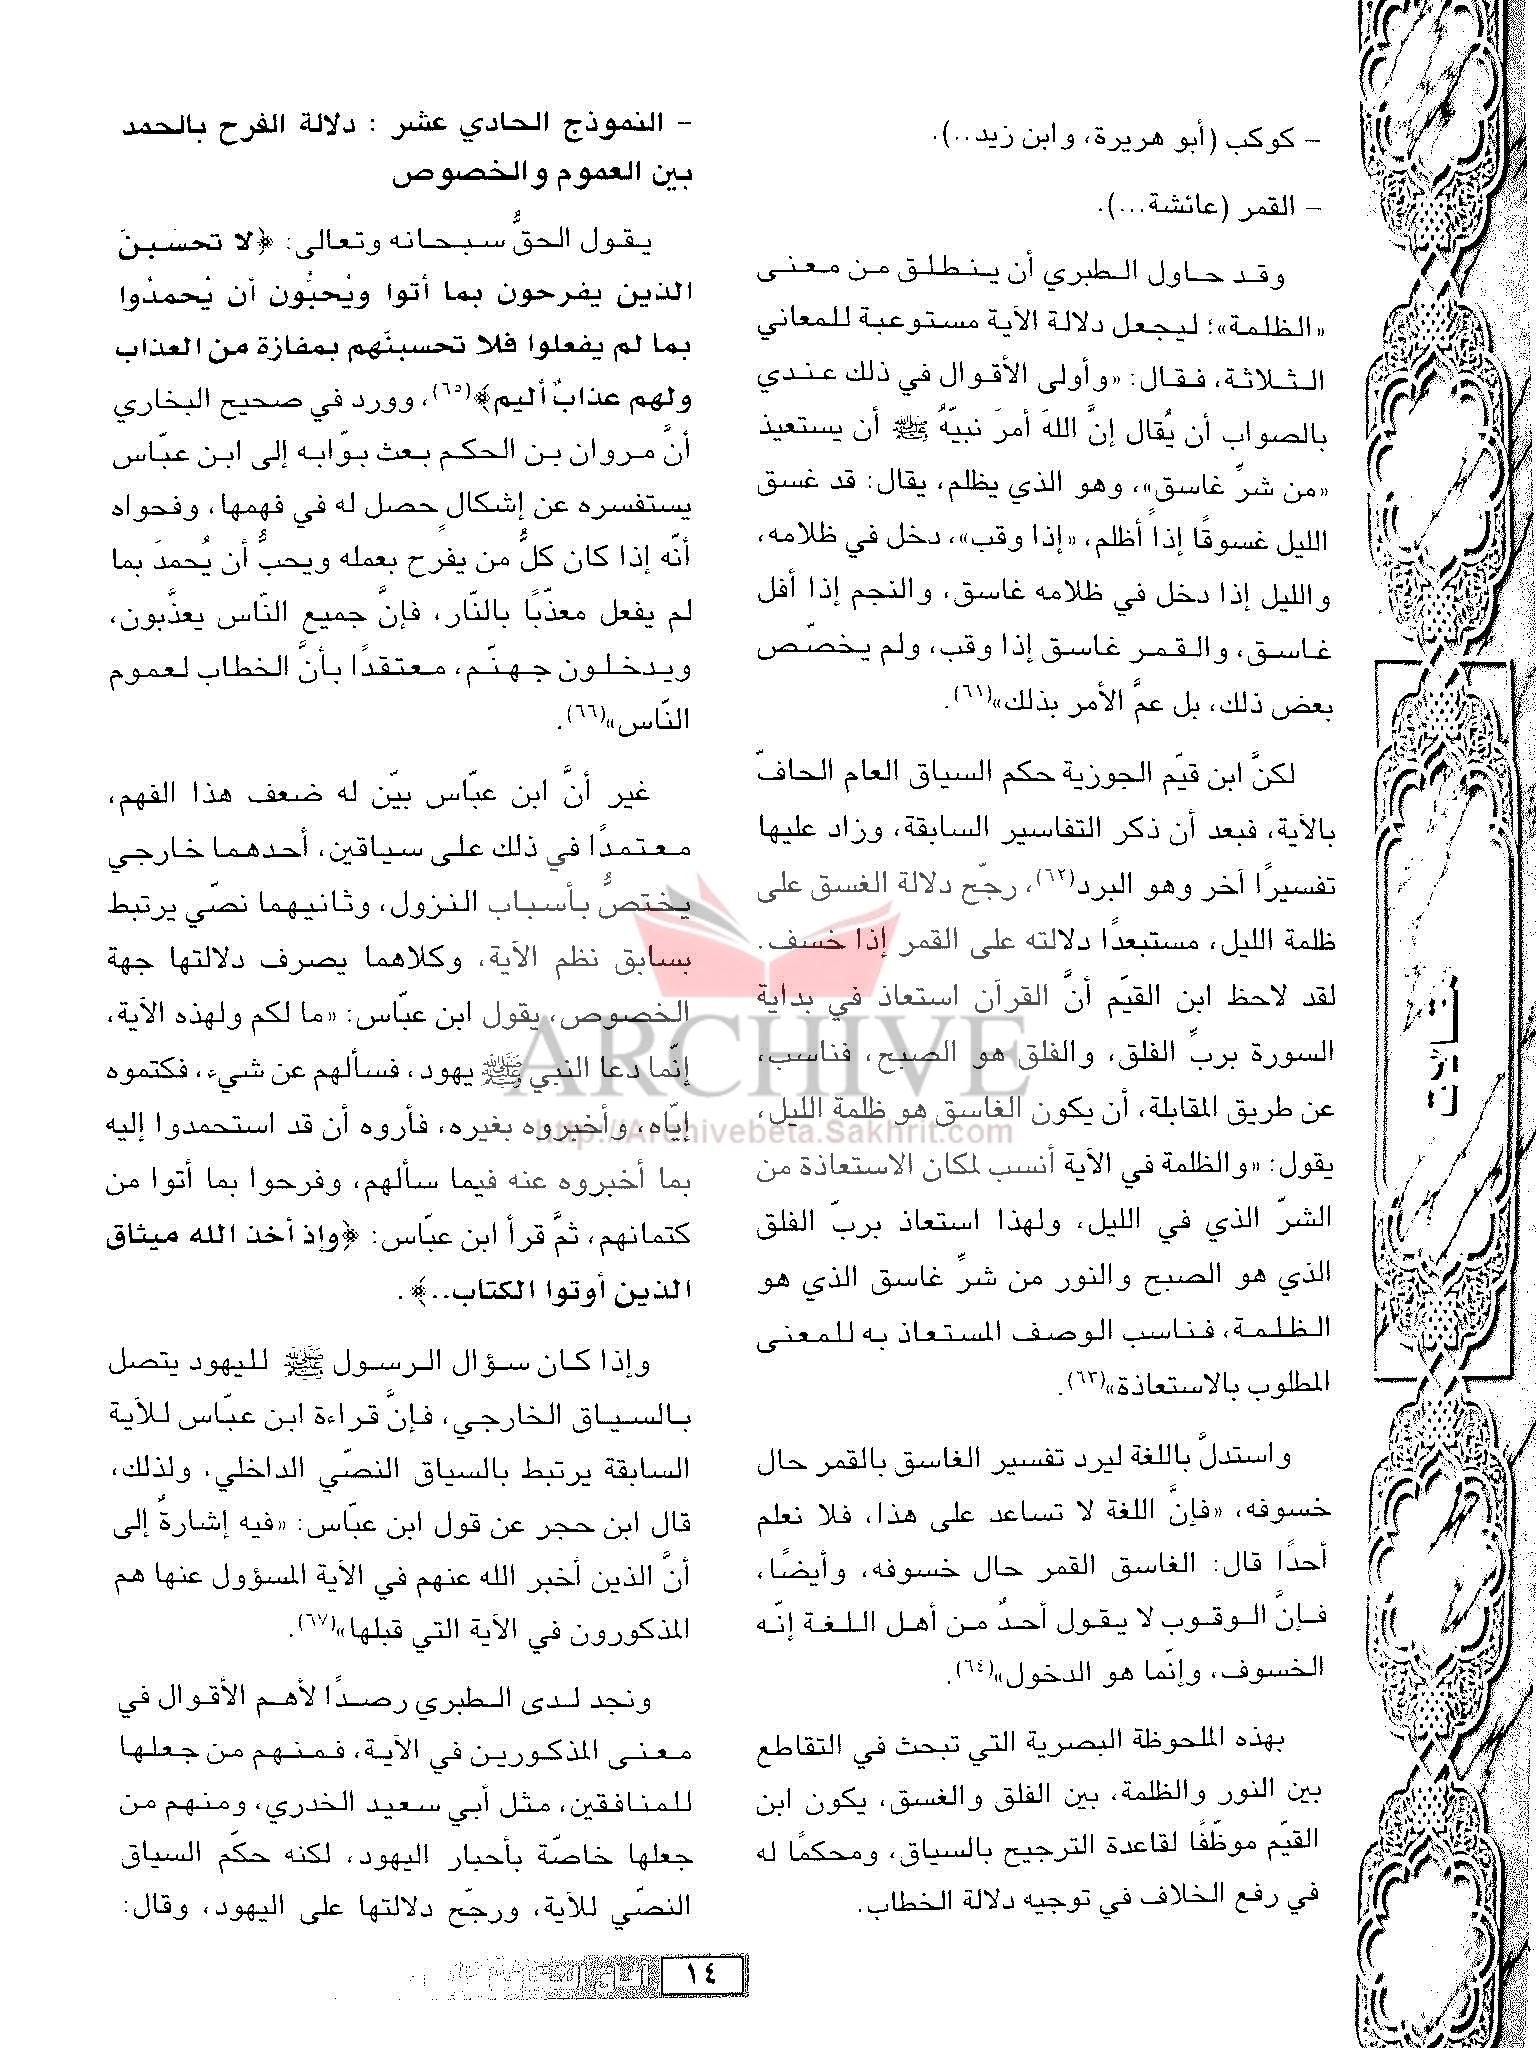 – كوكب (أبو هريرة، وابن زيد..).
– القمر (عائشة...).
وقد حاول الطبري أن ينطلق من معنى
«الظلمة»؛ ليجعل دلالة الآية مستوعبة للمعاني
الثلاثة، فقال: «وأولى الأقوال في ذلك عندي
بالصواب أن يُقال إنَّ اللهَ أمرَ نبيّهُ ﷺ أن يستعيذ
«من شرِّ غاسق»، وهو الذي يظلم، يقال: قد غسق
الليل غسوقًا إذا أظلم، «إذا وقب»، دخل في ظلامه،
والليل إذا دخل في ظلامه غاسق، والنجم إذا أفل
غاسق، والقمر غاسق إذا وقب، ولم يخصّص
بعض ذلك، بل عمَّ الأمر بذلك»(٦١).
لكنَّ ابن قيّم الجوزية حكم السياق العام الحافّ
بالآية، فبعد أن ذكر التفاسير السابقة، وزاد عليها
تفسيرًا آخر وهو البرد(٦٢)، رجّح دلالة الغسق على
ظلمة الليل، مستبعدًا دلالته على القمر إذا خسف.
لقد لاحظ ابن القيّم أنَّ القرآن استعاذ في بداية
السورة بربِّ الفلق، والفلق هو الصبح، فناسب،
عن طريق المقابلة، أن يكون الغاسق هو ظلمة الليل،
يقول: «والظلمة في الآية أنسب لمكان الاستعاذة من
الشرّ الذي في الليل، ولهذا استعاذ بربّ الفلق
الذي هو الصبح والنور من شرِّ غاسق الذي هو
الظلمة، فناسب الوصف المستعاذ به للمعنى
المطلوب بالاستعاذة»(٦٣).
واستدلَّ باللغة ليرد تفسير الغاسق بالقمر حال
خسوفه، «فإنَّ اللغة لا تساعد على هذا، فلا نعلم
أحدًا قال: الغاسق القمر حال خسوفه، وأيضًا،
فإنَّ الوقوب لا يقول أحدٌ من أهل اللغة إنّه
الخسوف، وإنّما هو الدخول»(٦٤).
بهذه الملحوظة البصرية التي تبحث في التقاطع
بين النور والظلمة، بين الفلق والغسق، يكون ابن
القيّم موظّفًا لقاعدة الترجيح بالسياق، ومحكمًا له
في رفع الخلاف في توجيه دلالة الخطاب.
– النموذج الحادي عشر : دلالة الفرح بالحمد
بين العموم والخصوص
يقول الحقُّ سبحانه وتعالى: ﴿لا تحسبنَ
الذين يفرحون بما أتوا ويُحبُّون أن يُحمدُوا
بما لم يفعلوا فلا تحسبنّهم بمفازة من العذاب
ولهم عذابٌ أليم﴾(٦٥)، وورد في صحيح البخاري
أنَّ مروان بن الحكم بعث بوّابه إلى ابن عبّاس
يستفسره عن إشكالٍ حصل له في فهمها، وفحواه
أنّه إذا كان كلُّ من يفرح بعمله ويحبُّ أن يُحمدَ بما
لم يفعل معذّبًا بالنّار، فإنَّ جميع النّاس يعذَّبون،
ويدخلون جهنّم، معتقدًا بأنَّ الخطاب لعموم
النّاس»(٦٦).
غير أنَّ ابن عبّاس بيّن له ضعف هذا الفهم،
معتمدًا في ذلك على سياقين، أحدهما خارجي
يختصُّ بأسباب النزول، وثانيهما نصّي يرتبط
بسابق نظم الآية، وكلاهما يصرف دلالتها جهة
الخصوص، يقول ابن عبّاس: «ما لكم ولهذه الآية،
إنّما دعا النبي ﷺ يهود، فسألهم عن شيء، فكتموه
إيّاه، وأخبروه بغيره، فأروه أن قد استحمدوا إليه
بما أخبروه عنه فيما سألهم، وفرحوا بما أتوا من
كتمانهم، ثمَّ قرأ ابن عبّاس: ﴿وإذ أخذ الله ميثاق
الذين أوتوا الكتاب..﴾.
وإذا كان سؤال الرسول ﷺ لليهود يتصل
بالسياق الخارجي، فإنَّ قراءة ابن عبّاس للآية
السابقة يرتبط بالسياق النصّي الداخلي، ولذلك،
قال ابن حجر عن قول ابن عبّاس: «فيه إشارةٌ إلى
أنَّ الذين أخبر الله عنهم في الآية المسؤول عنها هم
المذكورون في الآية التي قبلها»(٦٧).
ونجد لدى الطبري رصدًا لأهم الأقوال في
معنى المذكورين في الآية، فمنهم من جعلها
للمنافقين، مثل أبي سعيد الخدري، ومنهم من
جعلها خاصّة بأحبار اليهود، لكنه حكّم السياق
النصّي للآية، ورجّح دلالتها على اليهود، وقال:
ARCHIVE
http://Archivebeta.Sakhrit.com
١٤